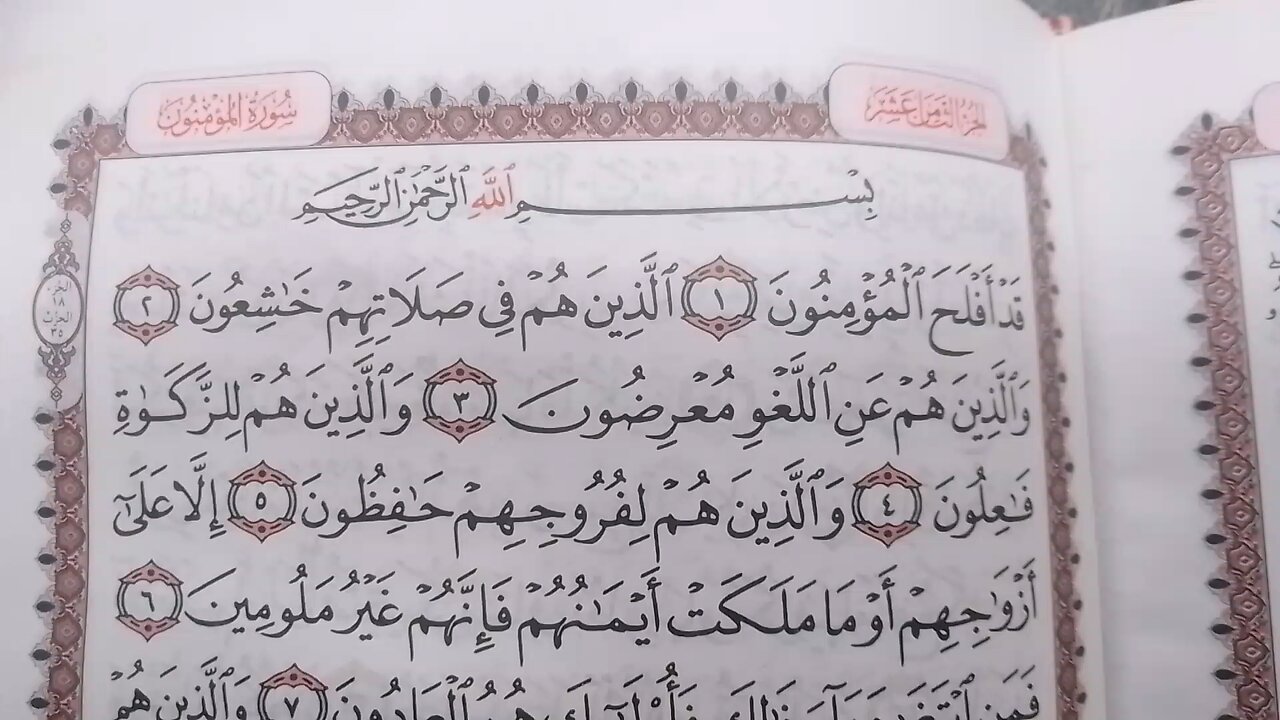 الجزء الثامن عشر
سورة المؤمنون
بِسْمِ ٱللَّهِ ٱلرَّحْمَٰنِ ٱلرَّحِيمِ
قَدْ أَفْلَحَ ٱلْمُؤْمِنُونَ ١ ٱلَّذِينَ هُمْ فِي صَلَاتِهِمْ خَٰشِعُونَ ٢
وَٱلَّذِينَ هُمْ عَنِ ٱللَّغْوِ مُعْرِضُونَ ٣ وَٱلَّذِينَ هُمْ لِلزَّكَوٰةِ
فَٰعِلُونَ ٤ وَٱلَّذِينَ هُمْ لِفُرُوجِهِمْ حَٰفِظُونَ ٥ إِلَّا عَلَىٰٓ
أَزْوَٰجِهِمْ أَوْ مَا مَلَكَتْ أَيْمَٰنُهُمْ فَإِنَّهُمْ غَيْرُ مَلُومِينَ ٦
فَمَنِ ٱبْتَغَىٰ وَرَآءَ ذَٰلِكَ فَأُو۟لَٰٓئِكَ هُمُ ٱلْعَادُونَ ٧ وَٱلَّذِينَ هُمْ
الجزء
١٨
الحزب
٣٥